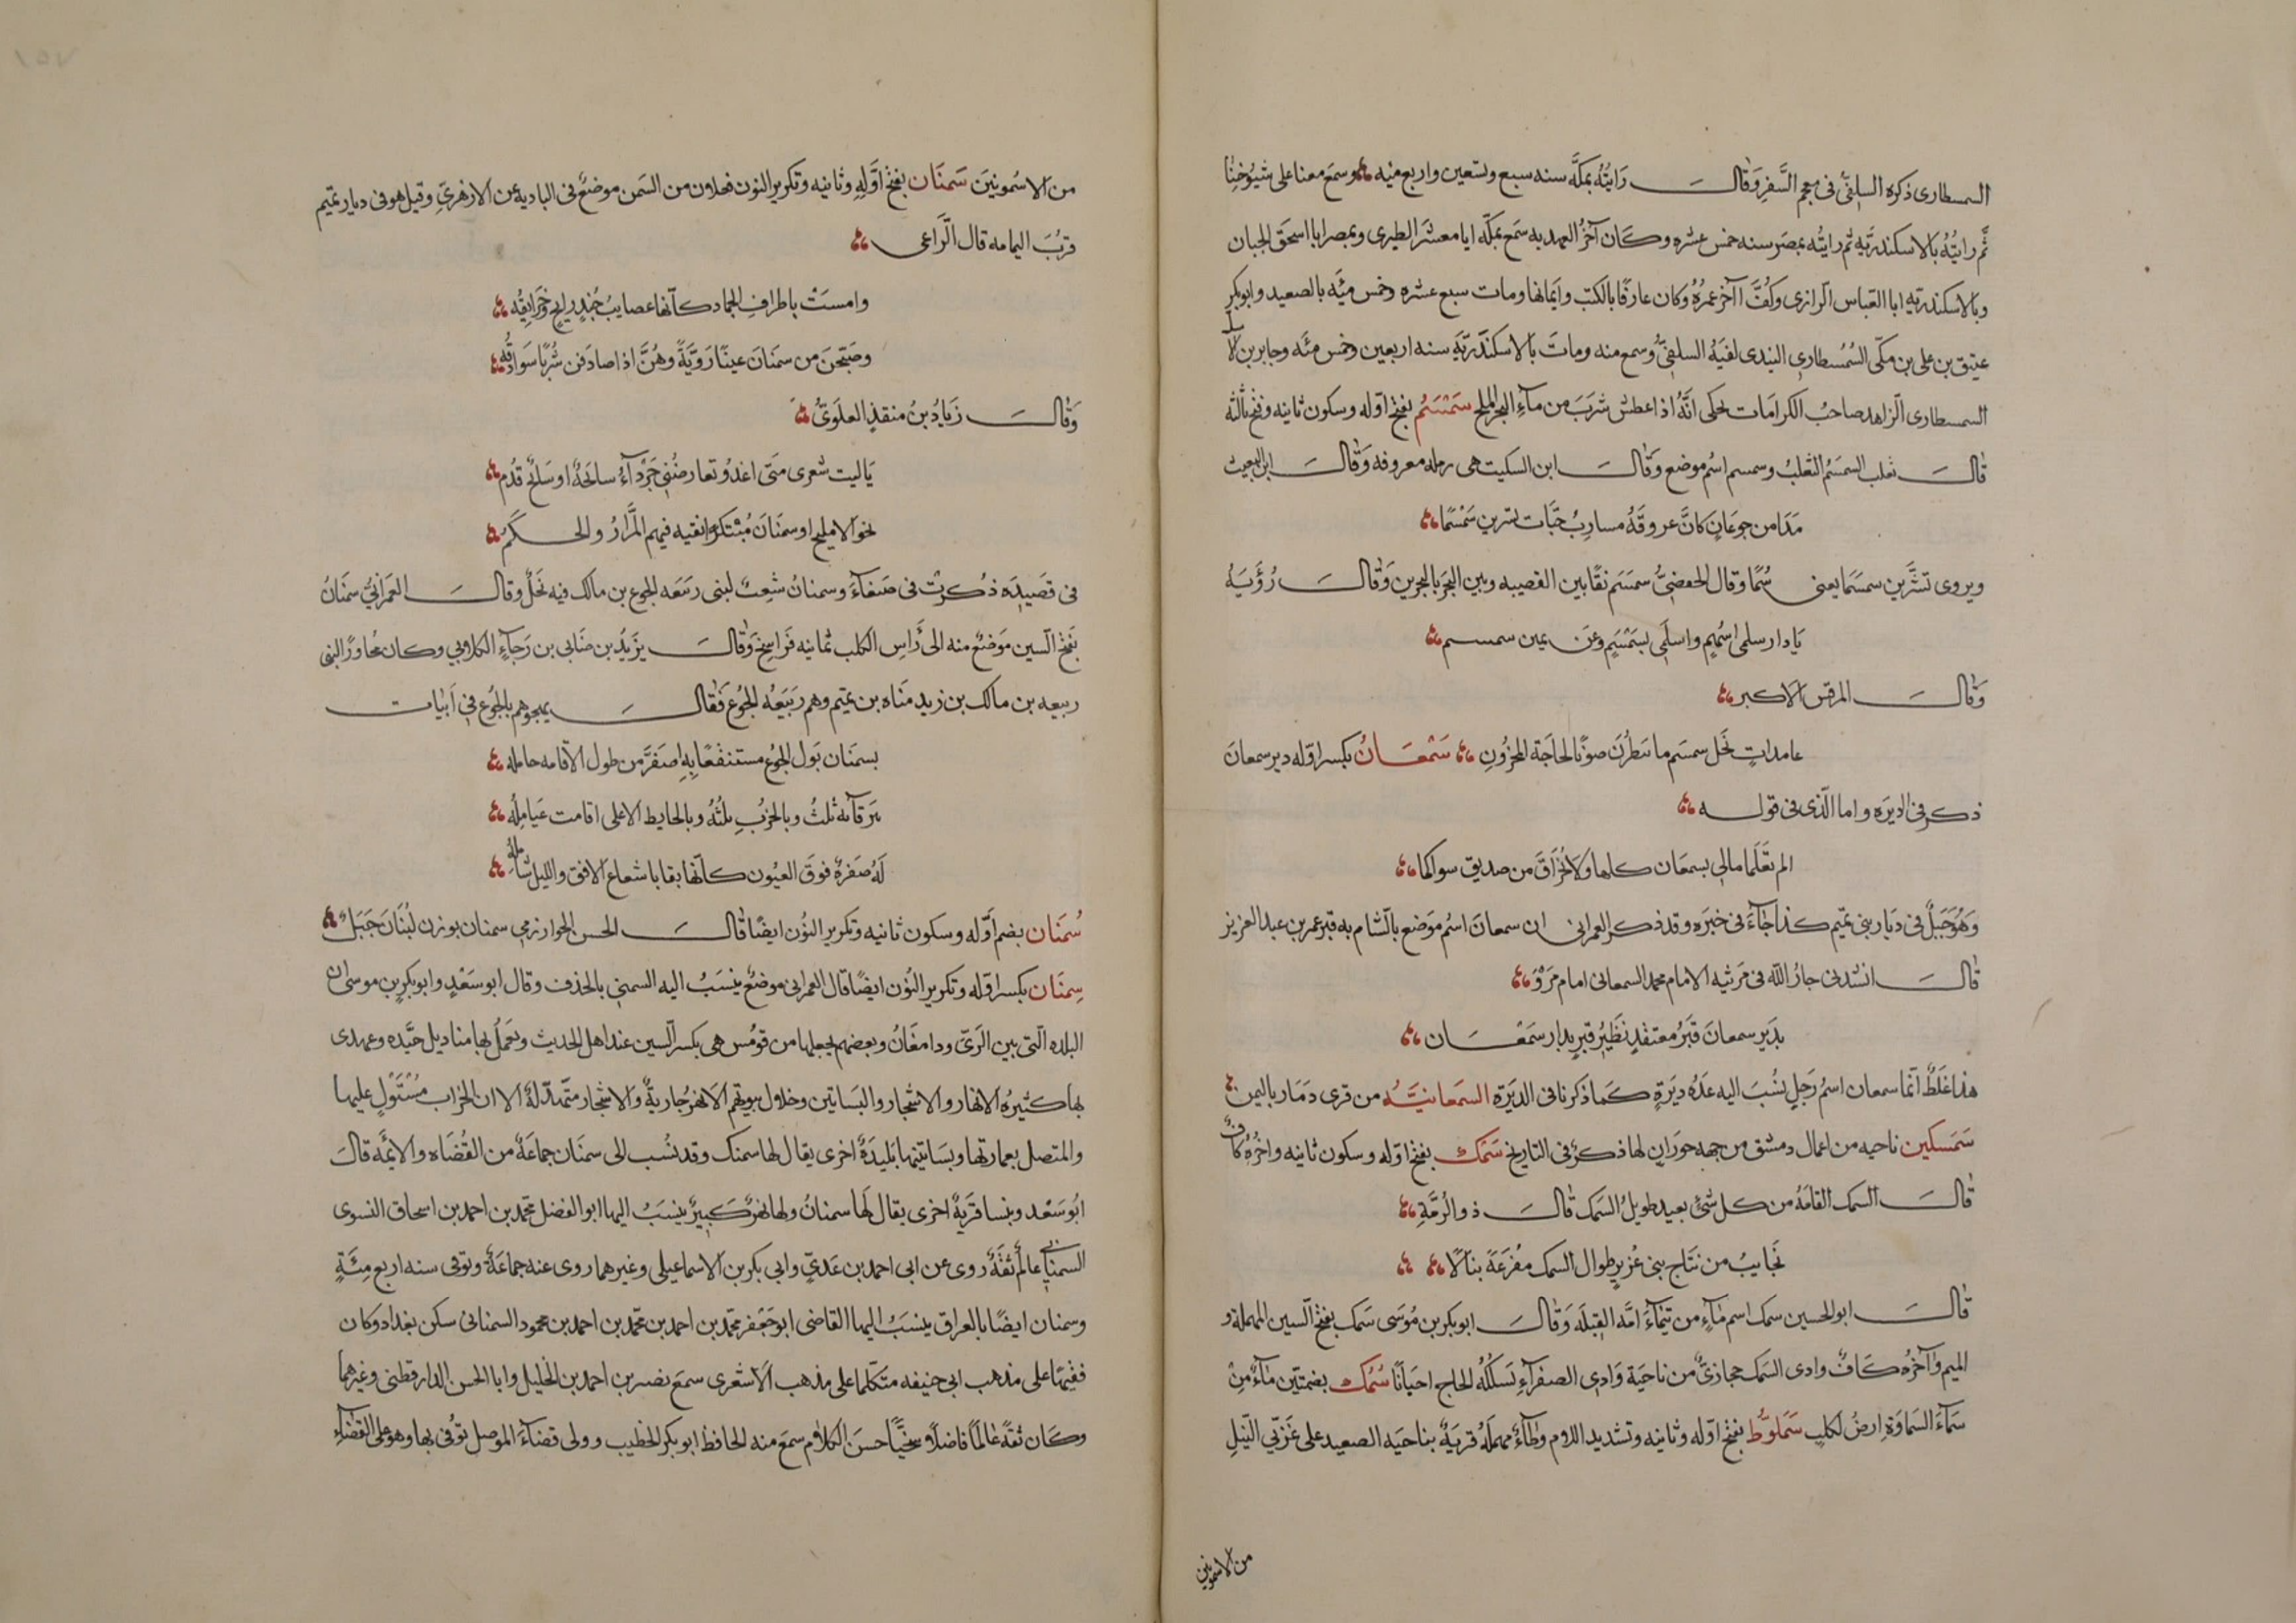 السمسطارى ذكره السلفىّ فى معجم السَّفرِ وَقالَ رَايتُهُ بمكَّة سنه سبع وتسعين واربع ميه وسمَع معنا على شيُوخنِا
ثُمّ رايتُهُ بالاسكندرَّيهِ ثم رايتُه بمصَر سنه خمس عشره وكَان آخُر العهد به سمَع بمكّه ابا معشَر الطبرى وبمصر ابا اسحَق الحبان
وبالاسكندرية ابا العَباس الرازى وكُفَّ اآخر عمرُهُ وكان عارفًا بالكتب واَثمانها ومات سبع عشره وخمس ميَه بالصعيد وابو بكر
عتيق بن على بن مكّى السُمُسطارى البندى لقيَهُ السلفىُّ وسمع منه وماتَ بالاسكندَريَّةِ سنه اربعين وخمس مئه وجابر بن
السمسطارى الزاهد صاحبُ الكرامَات يحكى انَّهُ اذا عطش شربَ من مآءِ البحرِ الملحِ سَمْسَمُ بفتحِ اوّله وسكون ثانيه وفتح ثالثه
قالَ ثعلب السمسَمُ الثعلبُ وسمسم اسُم موضع وَقالَ ابن السكيت هى رمله معروفه وَقالَ ابن البعيث
مَدَامن جوعَانٍ كانَّ عروقَهُ مسارِبُ حيَّات تسَربن سَمْسَما
ويروى تشرَّبن سمسَمَا يعنى سُمًا وقال الحفصىُّ سمسَم نقًا بين القصيبه وبين البحرَ بالبحرين وَقالَ رُؤبَةُ
يَا دار سلمى اسُلمىِ واسلَمى بسَمْسَمٍ وعَن يمين سمسم
وَقالَ المرقش الاكبر
عامداتٍ نَخل سمسَم ما ينظُرنَ صوتًا لحاجَة المحزُونِ سَمْعَانُ بكسر اوّله دير سمعانَ
ذكر فى الديرَه واما الّذى فى قوله
الم تعَّلَما مالى بسمعَان كلها ولا بُخزَاقَ من صديق سواكما
وَهُوَ جَبَلٌ فى ديَار بنى تميم كذا جآءَ فى خبَره وقد ذكر العمرانى ان سمعانَ اسُم مَوضع بالشام به قبر عمر بن عبد العزيز
قالَ انشدنى جارُ الله فى مَرثيه الامام محمد السمعانى امام مَرْوَ
بدَير سمعانَ قبَرُ معتقدٍ نظَيُر قبرٍ بدار سَمْعَان
هذا غلَطٌ انّما سمعان اسمُ رَجلٍ ينُسَبَ اليه عدَةُ ديَرَةٍ كَمَا ذكرنا فى الديَرَةِ السمَعانيَّة من قرى ذمَار باليمن
سَمَسكين ناحيه من اعمال دمشق من جهه حورَان لها ذكرٌ فى التاريخ سَمْك بفتحِ اوّله وسكون ثانيه واخرُهُ كَافٌ
قالَ السمك القامَهُ من كل شئٍ بعيد طويلُ السَمك قالَ ذو الرُمَّةِ
نَجَايبُ من نتَاج بنى عُزيرٍ طوال السمك مفُرَعَةً بنالًا
قالَ ابو الحسين سمك اسم مَآءٍ من تيمَآءَ امّه القبلَه وَقالَ ابو بكر بن مُوسَى سَمَك بفتح السّين المهملة و
الميم وآخرُهُ كَافٌ وادى السَمَك حجازىٌّ من ناحيَة وَادِى الصفرآءِ تَسلكُهُ الحاج احيَانًا سُمُك بضمتين مَآءٌ منِ
سَمآءَ السَماوَةِ ارضُ لكلب سَمَلوُّط بفتحِ اوّله وثانيه وتشديد اللام وَطآءٌ مهملَهُ قريَةٌ بناحيَه الصعيد على غَربىّ النّيلِ
من الاشمونين
من الاشمونينَ سَمنَان بفتحِ اوَّلهِ وثانيه وتكريرِ النون فعلان من السَمن موضعٌ فى الباديه عن الازهرىّ وقيل هو فى ديار تميم
قرُبَ اليمامه قال الرَّاعى
وامسَتْ باطراف الجماد كانّها عصايبُ جُندٍ رايحٍ وَخرَانِقُه
وصبّحنَ من سمنَانَ عينًا رَويَّةً وهُنَّ اذا صادَفن شُربًا سَوابقُه
وَقالَ زيَادُ بنُ منقذٍ العلَوىُّ
يَا ليت شعرى متَى اغدُو تعارضُنىِ جَرْدآءُ سابحَةٌ او سَابحٌ قدُم
نحوَ الاميلح او سمنَانَ مُبْتكَرًا بفتيه فيهم المَّرارُ والحكَمُ
فى قصَيدَةٍ ذُكرتْ فى صَنعَآءَ وسمنانُ شعِبٌ لبنى رَبيَعه الجوع بن مالك فيه نَخلٌ وقالَ العَمرانىُّ سمنَانُ
بَفتح السّين مَوَضعٌ منه الى رَأسِ الكلب ثمانيه فرَاسِخ وَقالَ يزَيدُ بن ضَابى بن رجَآءِ الكلابى وكان مُجاورًا لبنى
ربيعه بن مالك بن زيد مَناه بن تميم وهم رَبيَعهُ الجُوع فَقالَ يهجوهم بالجُوع فى اَبيات
بسمنَان بَول الجُوع مستنقعًا بهِ اصفَرَّ من طول الاقامه حامله
ببَرقآئه ثُلثُ وبالخرُبِ ثلثُهُ وبالحايط الاعلى اقامت عَيَاملُه
لَهُ صَفرةٌ فوقَ العيُون كانّها بقايا شعاع الافق والليل شامله
سُمنَان بضم اَوّله وسكون ثانيه وتكرير النُون ايضًا قالَ الحسن الخوارزمى سمنان بوزن لُبنَانَ جَبَلٌ
سِمنَان بكسر اوّله وتكرير النُون ايضًا قال العمرانى موضعٌ ينسَبُ اليه السمنىِ بالحذف وقال ابو سَعْدٍ وابو بكر بن موسى ان
البلده الّتى بين الَرىّ ودامغَانُ وبعضهم يجعلها من قوُمس هى بكسر السّين عند اهل الحديث وتعمَلُ بها مناديل جيَّده وعهدى
بها كثيرهُ الانهار والاشجار والبَساتين وخلال بيوتهم الانهرُ جَاريةٌ وَالاشجار متهّدّلهٌ الا ان الخراب مُسْتَوْلٍ عليها
والمتصل بعمارتها وبسَاتينها بُليدَةٌ اخرى يقال لها سمنك وقد نسُب الى سمنَان جماعَةٌ من القُضَاه والائمَّه قالَ
ابُو سَعْد وبنسا قريَةٌ اخرى يقال لهَا سمنانُ ولها نهرٌ كَبيرٌ ينسَبُ اليها ابو الفضل محمّد بن احمد بن اسحاق النسوى
السمنانى عالمٌ ثقَةٌ روى عن ابى احمد بن عدَىّ وابى بكر بن الاسماعيلى وغيرهما روى عنه جماعَةٌ وتوفى سنه اربع مِئَةٍ
وسمنان ايضًا بالعراق ينسَبُ اليها القاضى ابو جعَفر محّمد بن احمد بن محّمد بن احمد بن محمود السمنانىُ سكن بغداد وكان
فقيهًا على مذهب ابى حنيفه متكلمّا على مذهب الاَشعرى سمَع نصر بن احمد بن الخليل وابا الحسن الدارقطنى وغيرهما
وكَان ثقةً عالمًا فاضلًا سخيًّا حسَن الكلام سمَع منه الحافظ ابو بكر الخطيب وولى قضآءَ الموصل توُفى بها وهو على القضآءِ